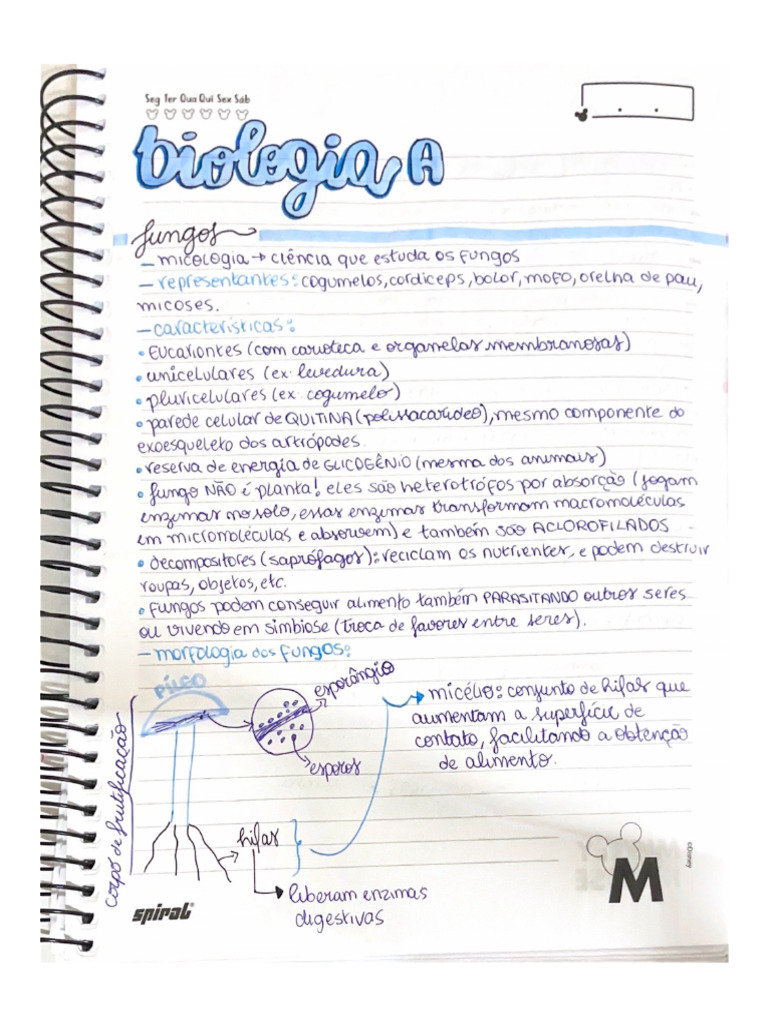 Seg Ter Qua Qui Sex Sáb
biologia A
fungos
- micologia → ciência que estuda os fungos
- representantes: cogumelos, cordiceps, bolor, mofo, orelha de pau,
micoses.
- características:
• Eucariontes (com carioteca e organelas membranosas)
• unicelulares (ex: levedura)
• pluricelulares (ex: cogumelo)
• parede celular de QUITINA (polissacarídeo), mesmo componente do
exoesqueleto dos artrópodes.
• reserva de energia de GLICOGÊNIO (mesma dos animais)
• fungo NÃO é planta! eles são heterotrófos por absorção (jogam
enzimas no solo, essas enzimas transformam macromoléculas
em micromoléculas e absorvem) e também são ACLOROFILADOS
• decompositores (saprófagos): reciclam os nutrientes, e podem destruir
roupas, objetos, etc.
• Fungos podem conseguir alimento também PARASITANDO outros seres
ou vivendo em simbiose (troca de favores entre seres).
- morfologia dos fungos:
píleo
esporângio
esporos
corpo de frutificação
hifas
liberam enzimas
digestivas
micélio: conjunto de hifas que
aumentam a superfície de
contato, facilitando a obtenção
de alimento.
©Disney
M
spiral®